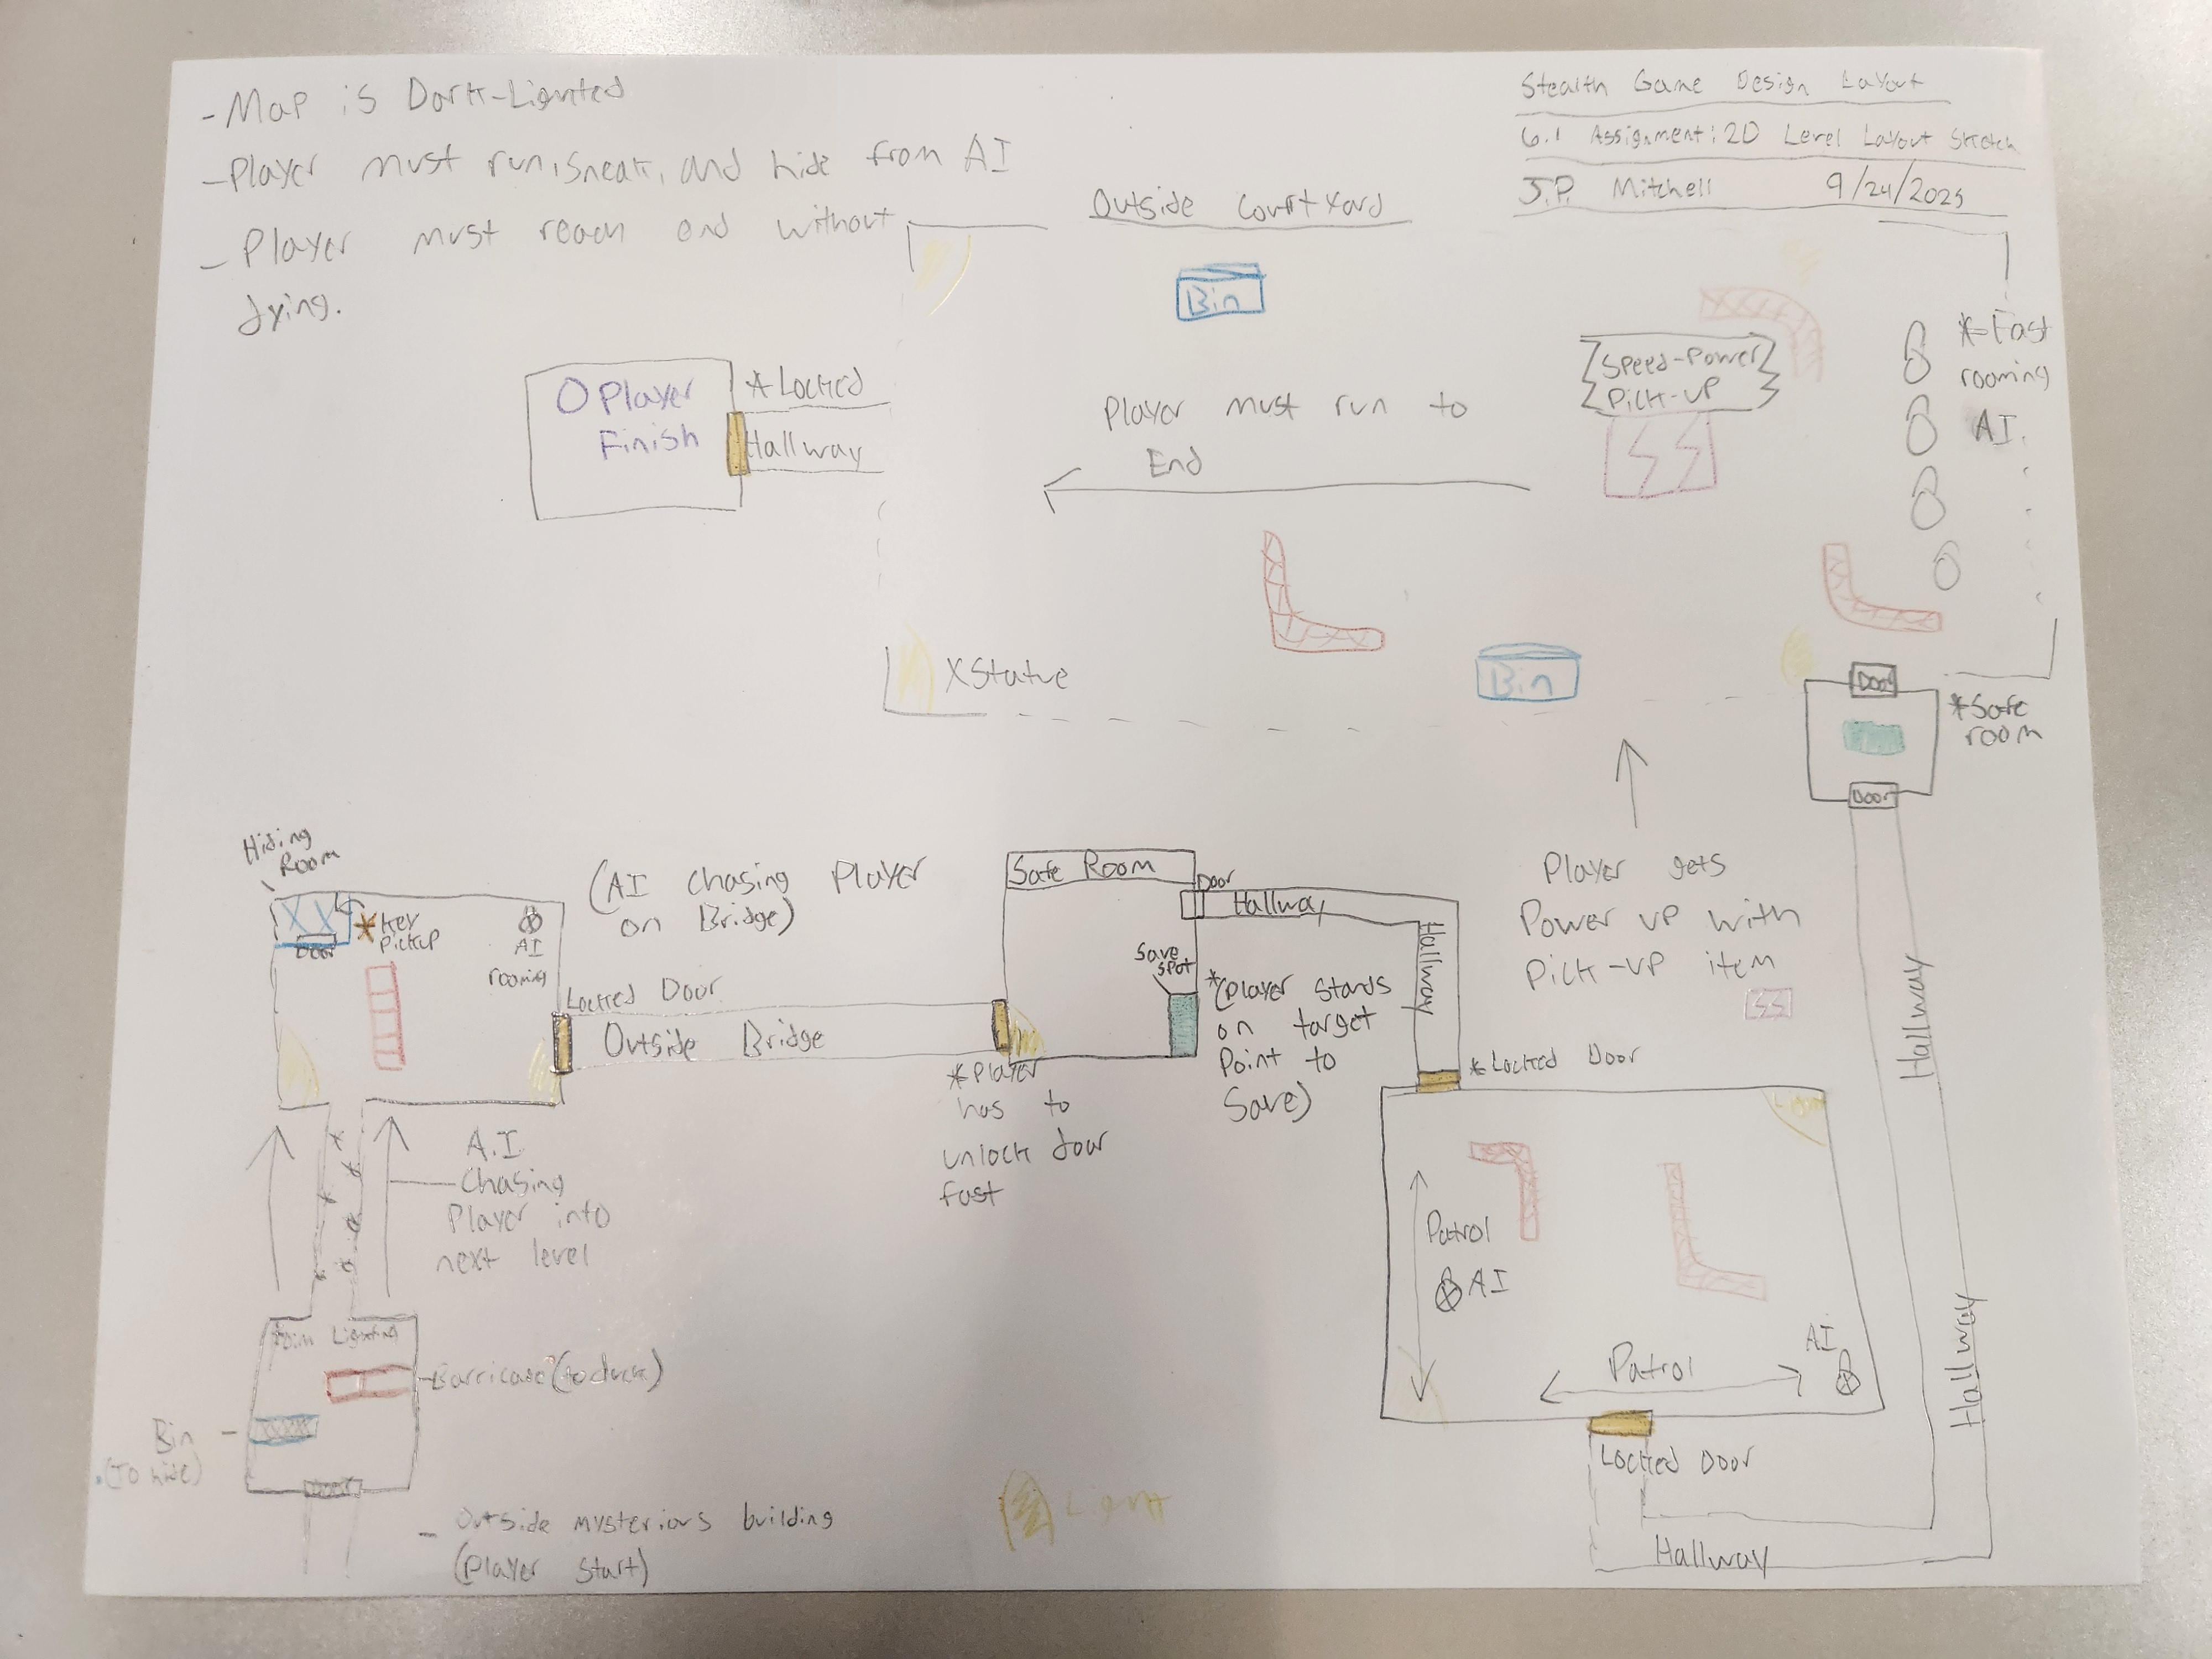 - Map is Dark-Lighted
- Player must run, sneak, and hide from AI
- Player must reach end without
dying.
Stealth Game Design Layout
6.1 Assignment: 2D Level Layout Sketch
J.P. Mitchell 9/24/2025
Outside Courtyard
Bin
Speed-Power
Pick-up
* Fast
rooming
AI.
O Player
Finish
* Locked
Hallway
Player must run to
End
X Statue
Bin
Door
* Safe
room
Door
Hiding
Room
Door
* Key
Pickup
AI
rooming
(AI chasing Player
on Bridge)
Locked Door
Outside Bridge
Safe Room
Door
Hallway
Hallway
Save
Spot
* (Player stands
on target
Point to
Save)
* Player
has to
unlock door
fast
Player gets
Power up with
Pick-up item
Hallway
Hallway
* Locked Door
Light
Patrol
AI
Patrol
AI
Locked Door
Hallway
A.I.
Chasing
Player into
next level
Dim Lighting
Barricade (to duck)
Bin
(To hide)
Door
- Outside mysterious building
(Player Start)
Light